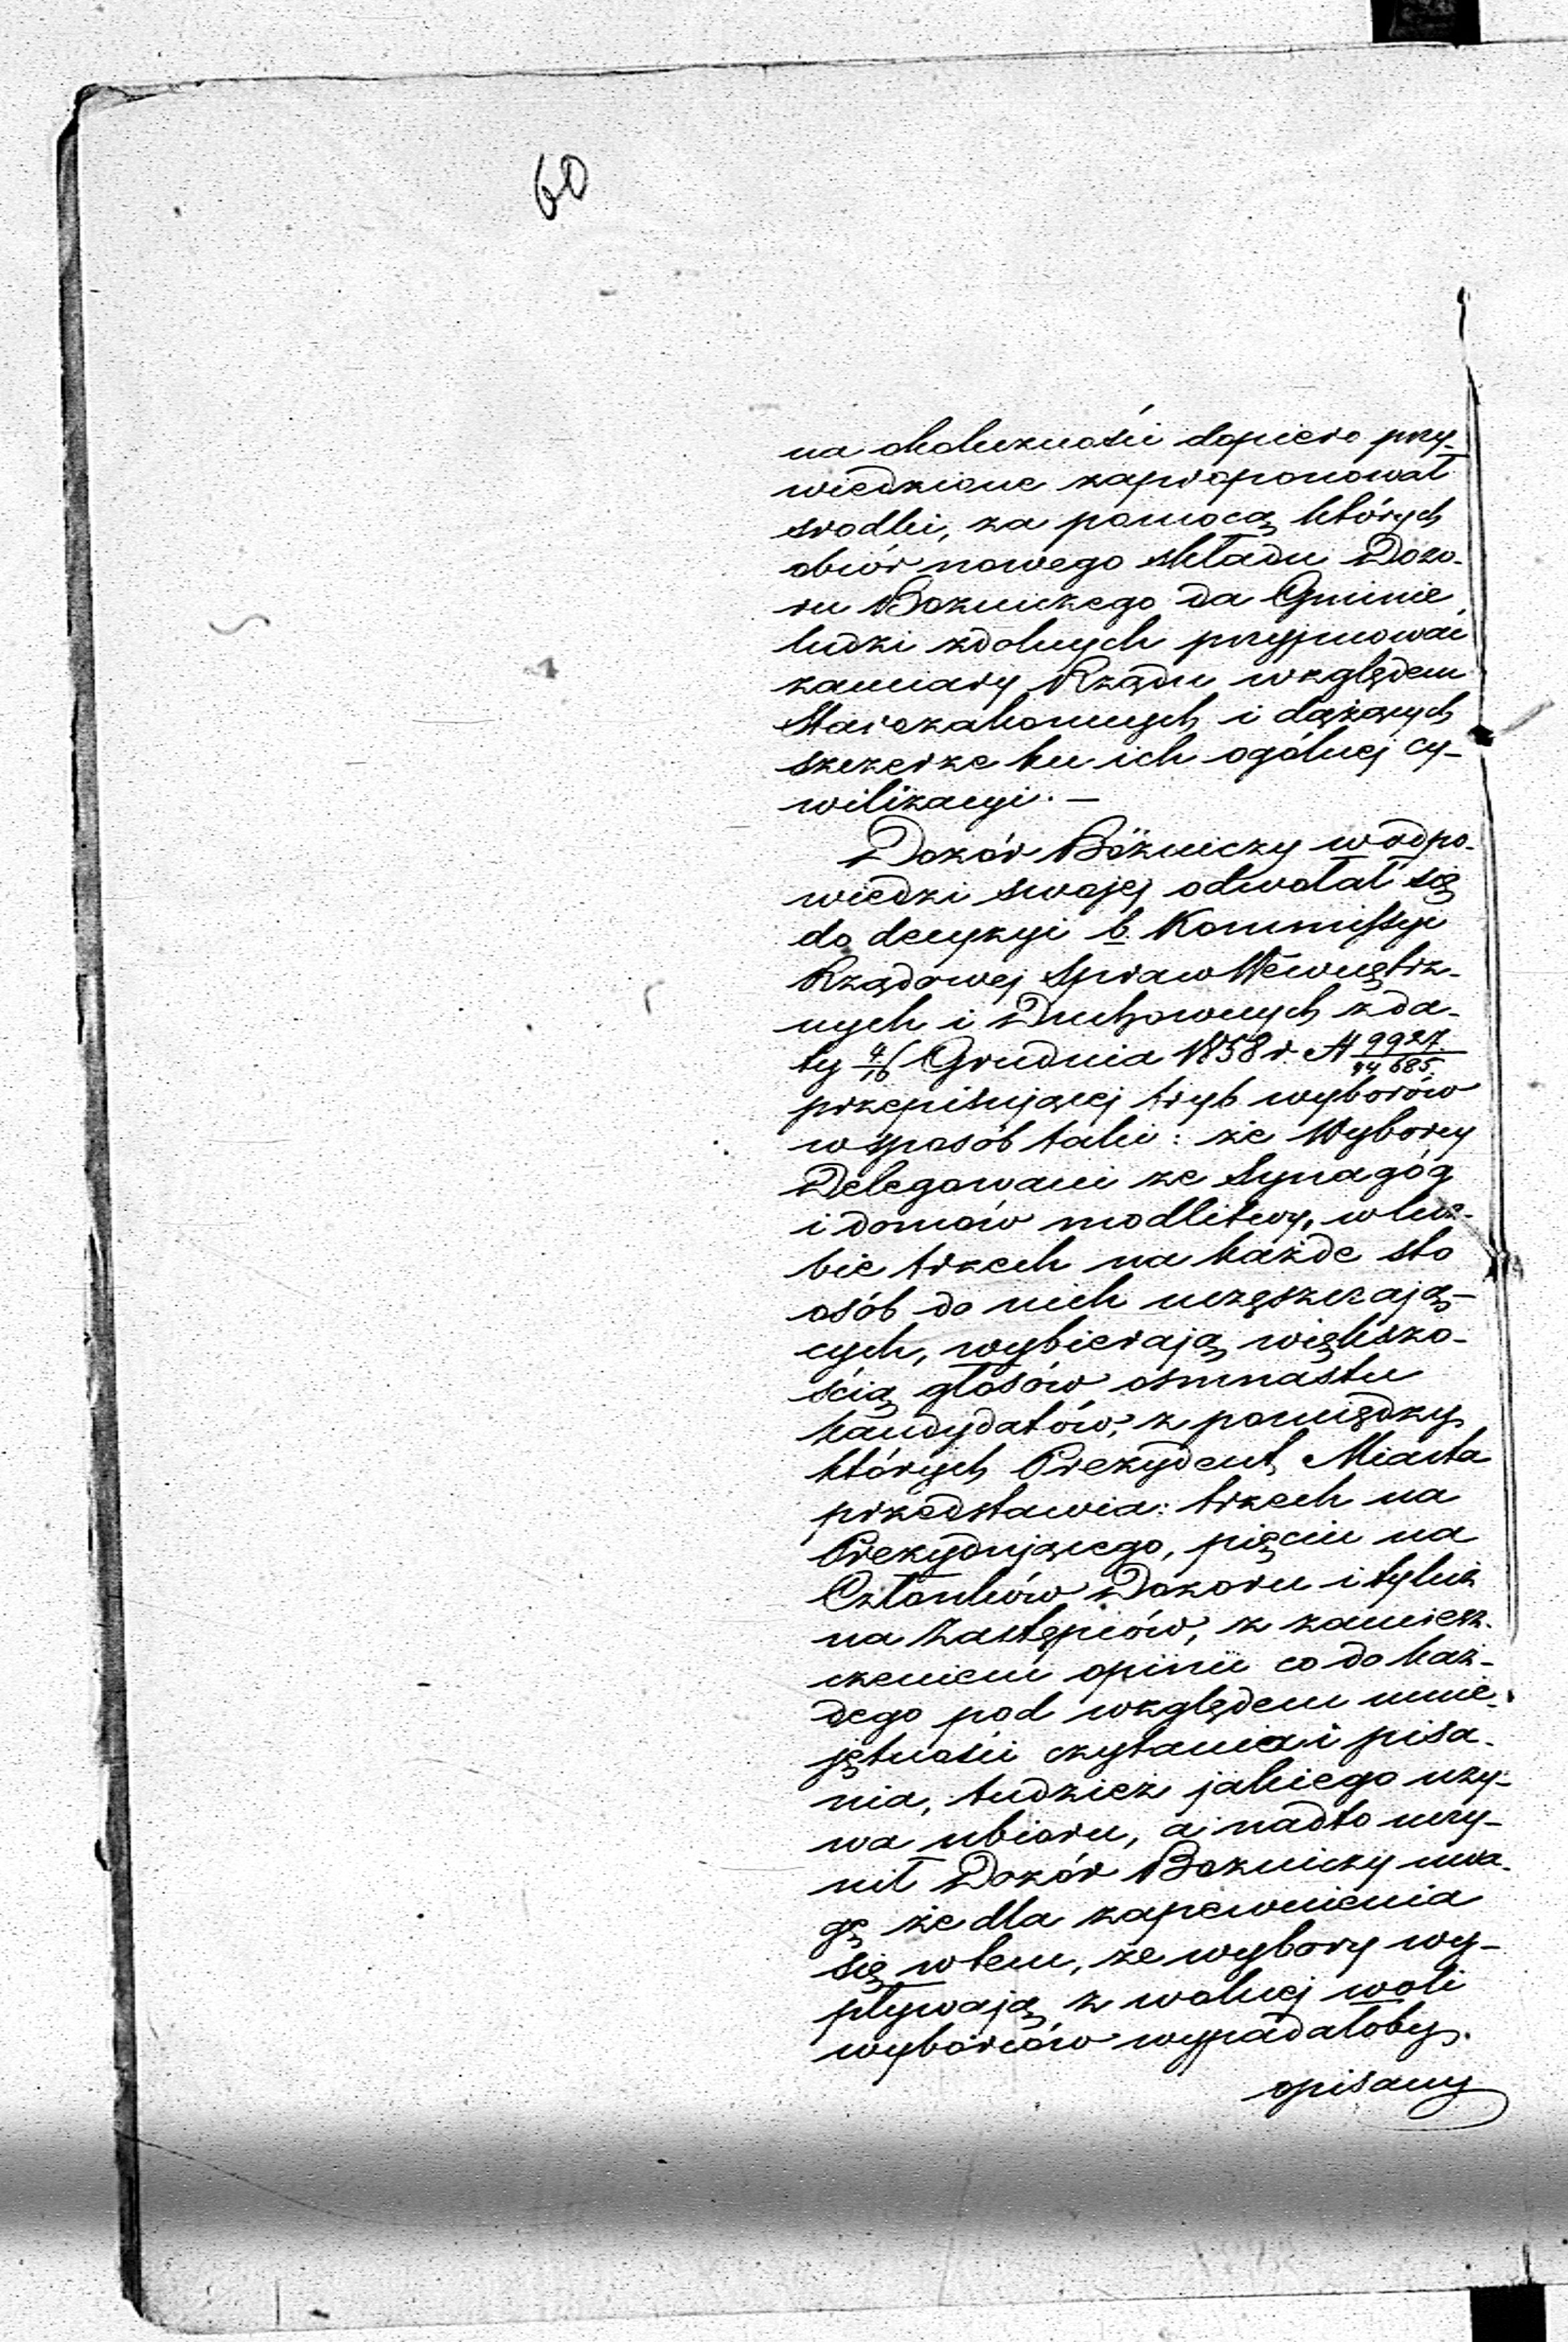 60
na okoliczności dopiero przy-
wiedzione zaproponował
srodki, za pomocą których
obiór nowego składu Dozo-
ru Bozniczego da Gminie
ludzi zdolnych przyjmować
zamiary Rządu względem
Starozakonnych i dążących
szczerze ku ich ogólnej cy-
wilizacyi. —
Dozór Bóżniczy w odpo-
wiedzi swojej odwołał się
do decyzyi b. Kommissyi
Rządowej Spraw Wewnętrz-
nych i Duchownych z da-
ty 4/16 Grudnia 1858 r. N 9927/94685
przepisującej tryb wyborów
w sposób taki: że Wyborcy
Delegowani ze Synagóg
i domów modlitwy, w licz-
bie trzech na każde sto
osób do nich uczęszczają-
cych, wybierają większo-
ścią głosów osmnastu
kandydatów, z pomiędzy
których Prezydent Miasta
przedstawia: trzech na
Prezydującego, pięciu na
Członków Dozoru i tyluż
na Zastępców, z zamiesz-
czeniem opinii co do każ-
dego pod względem umie-
jętności czytania i pisa-
nia, tudzież jakiego uży-
wa ubioru, a nadto uczy-
nił Dozór Bozniczy uwa-
gę że dla zapewnienia
się w tem, że wybory wy-
pływają z wolnej woli
wyborców wypadałoby
opisany